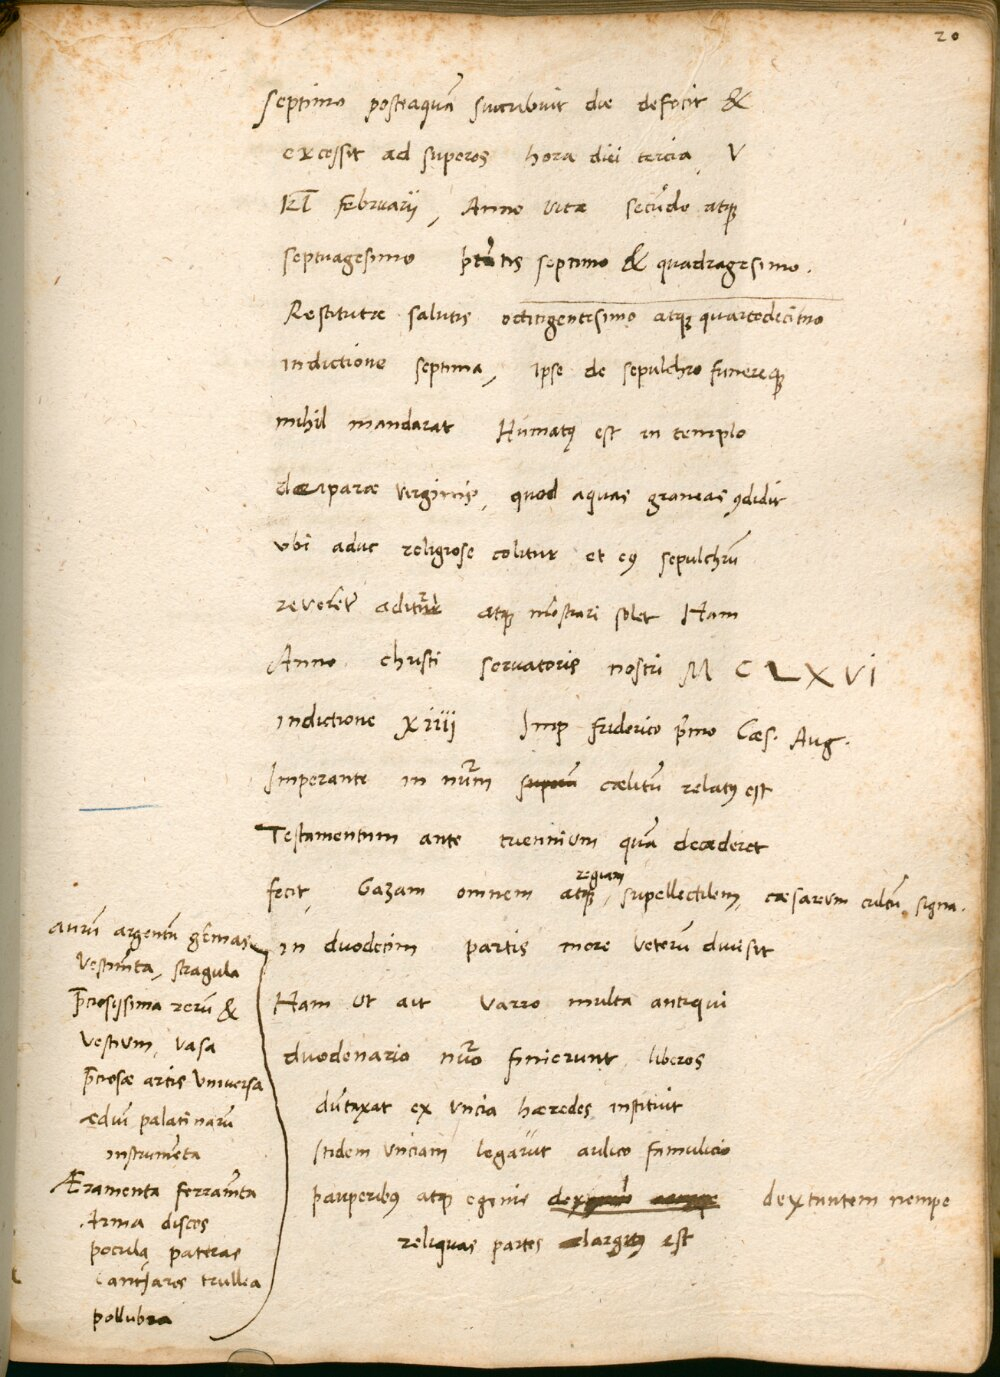 20
septimo posteaquā succubuit die defecit &
excessit ad superos hora diei tercia V
kl februarij, Anno vitæ secūdo atq;
septuagesimo septimo & quadragesimo.
Restitutæ salutis octingentesimo atq; quartodecimo
indictione septima, ipse de sepulchro funereq;
nihil mandarat Humatꝰ est in templo
deiparæ virginis, quod aquas graneas ꝯdidit
vbi aduc religiose colitur et eiꝰ sepulchrū
reverēter aditur atq; mōstrari solet Nam
Anno christi servatoris nostri M C L X V I
indictione xiiij Imp friderico p̄mo Cæs. Aug.
Imperante in nūm supeū cælitū relatꝰ est
Testamentum ante triennium quā decederet
fecit, Gazam omnem atq; regiam, supellectilem, cæsareum cultū, signa.
in duodecim partis more veterū divisit
Nam ut ait Varro multa antiqui
duodenario nūo finierunt liberos
dūtaxat ex vncia hæredes instituit
Itidem vnciam legavit aulico famulicio
pauperibꝰ atq; egenis dextantem nempe
reliquas partes elargitꝰ est
aurū argentū gēmas
vestimēta, stragula
p̄ciosissima rerū &
vestium, vasa
p̄ciosæ artis vniversa
ædiū palatinarū
instrumēta
Æramenta ferramēta
Arma discos
pocula pateras
Cantharos trullea
pollubra